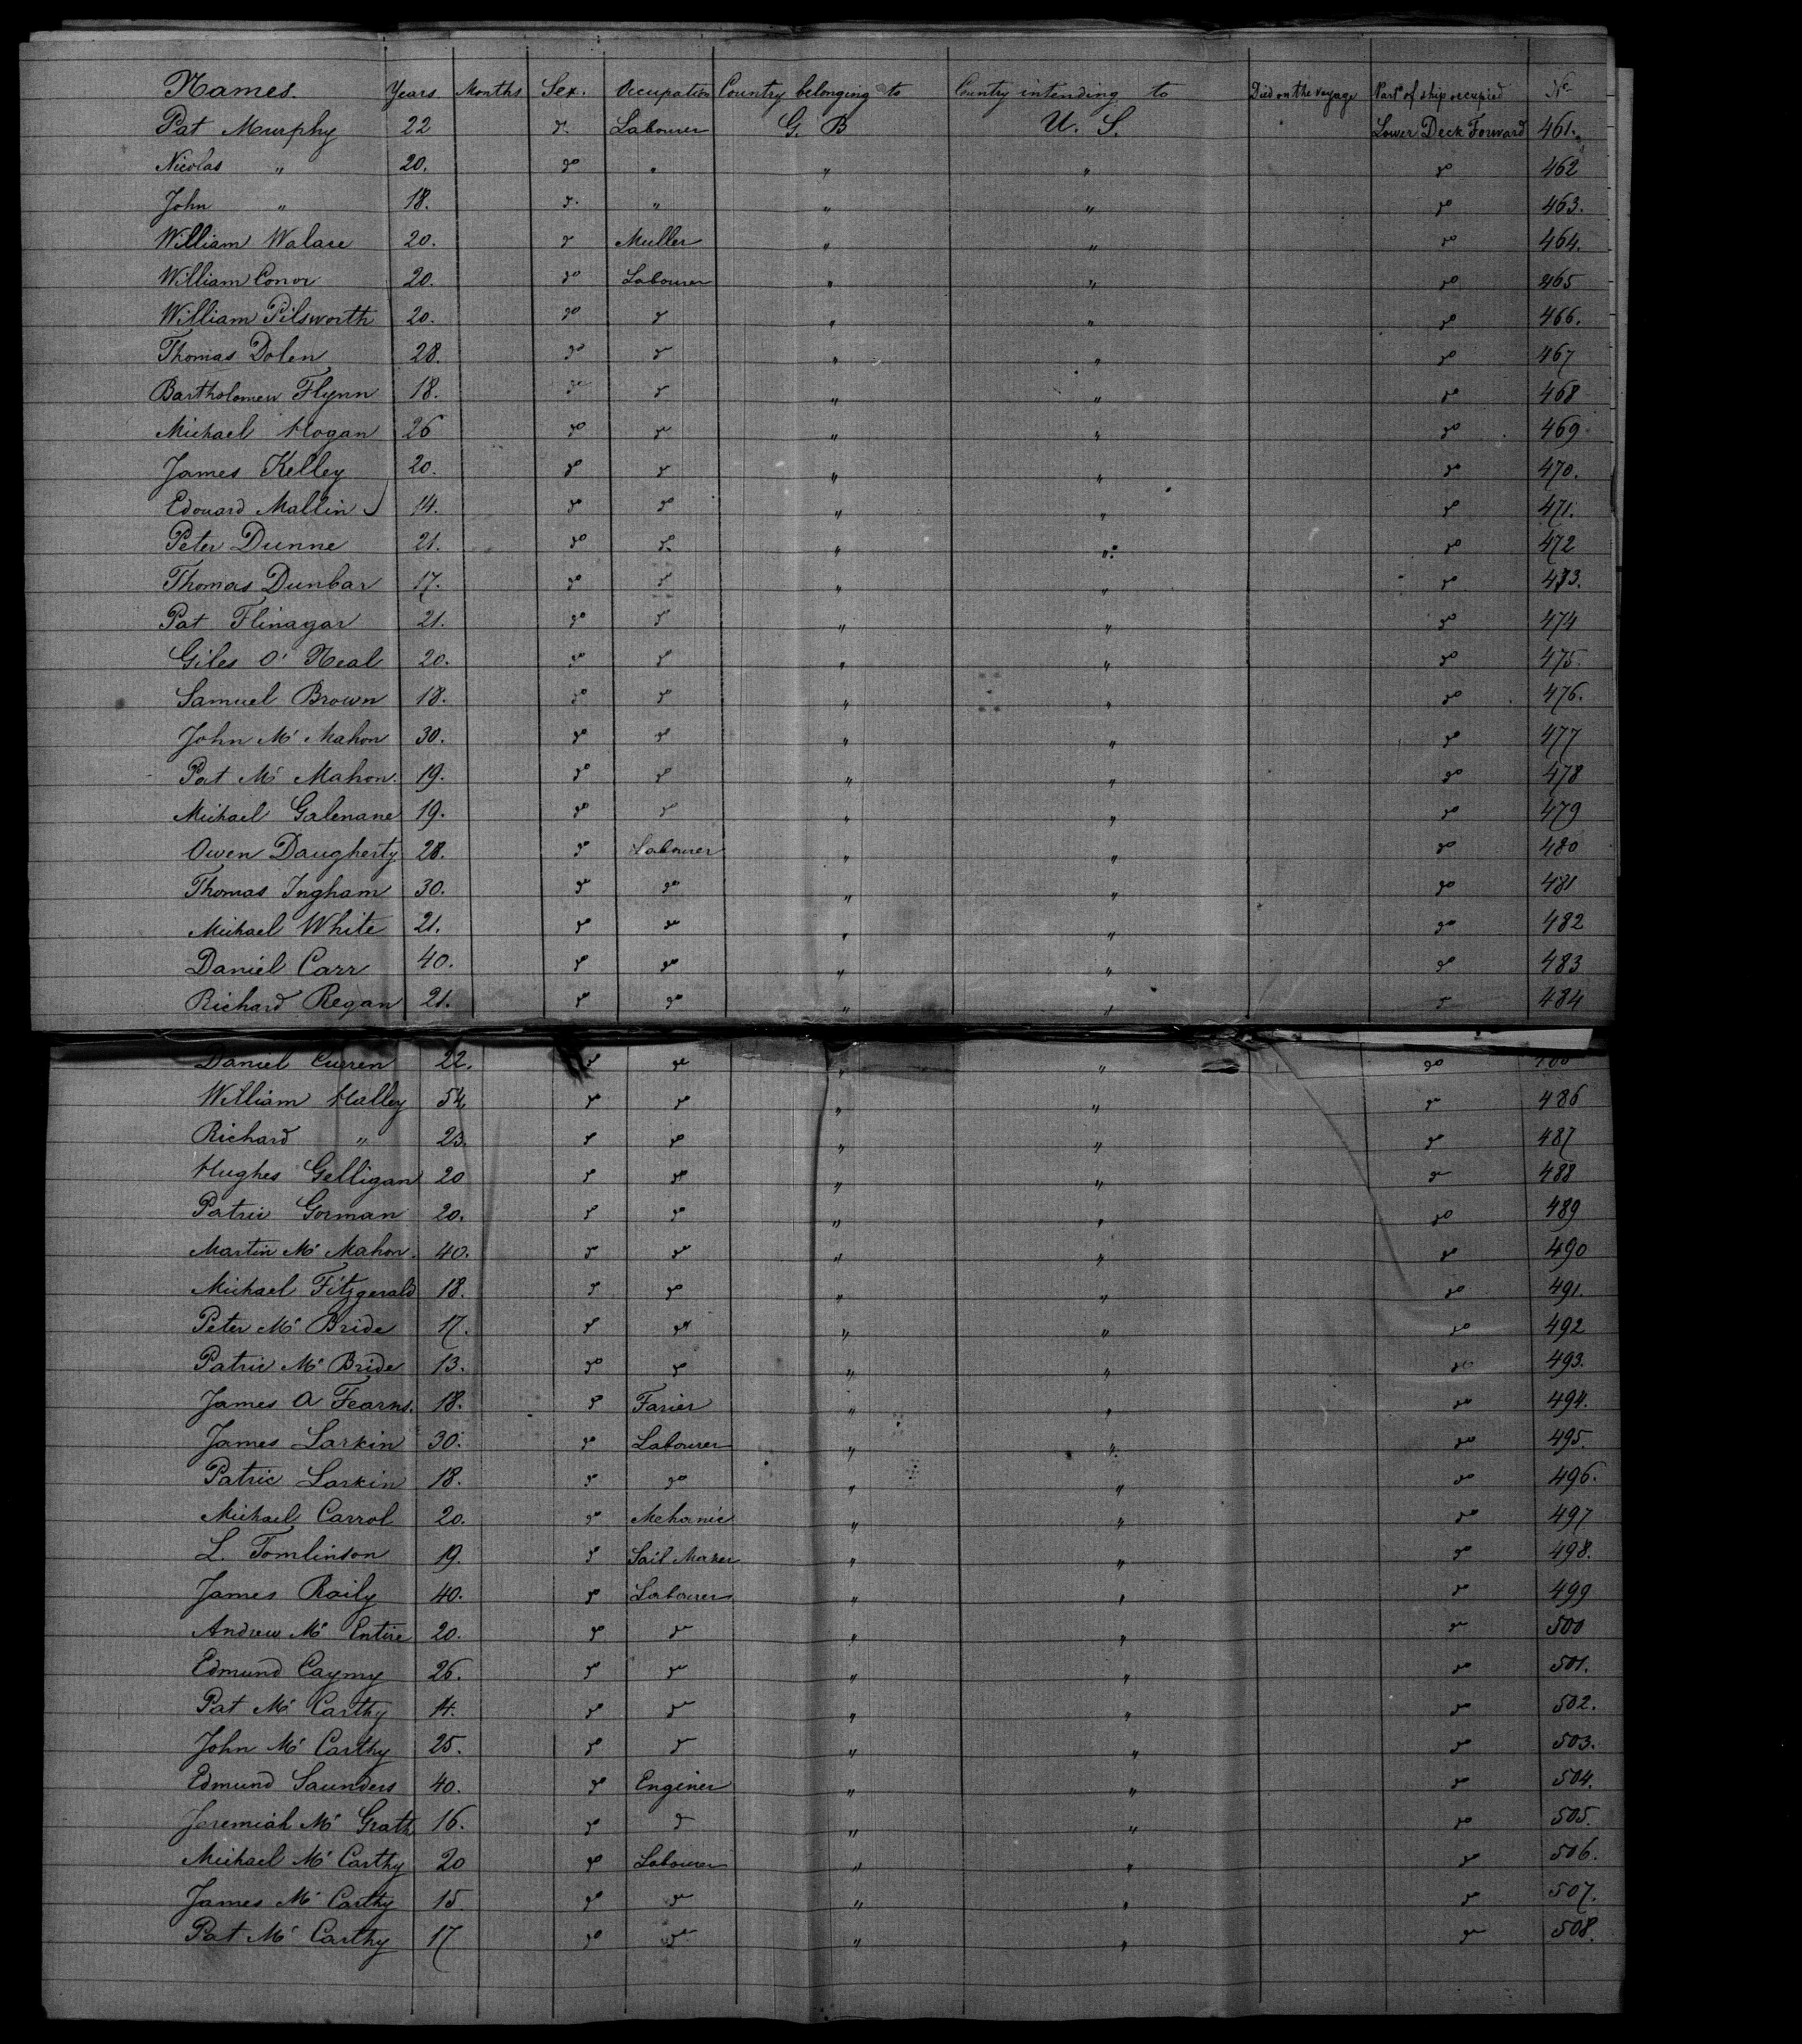 Names. Years Months Sex. Occupation Country belonging to Country intending to Died on the voyage Part of ship occupied No
Pat Murphy 22 do. Labourer G. B U. S. Lower Deck Forward 461.
Nicolas " 20. do " " " do 462
John " 18. do. " " " do 463.
William Walace 20. do Muller " " do 464.
William Conor 20. do Labourer " " do 465
William Pilsworth 20. do do " " do 466.
Thomas Dolen 28. do do " " do 467
Bartholomew Flynn 18. do do " " do 468
Michael Hogan 26 do do " " do 469
James Kelley 20. do do " " do 470.
Edouard Mallin 14. do do " " do 471.
Peter Dunne 21. do do " " do 472
Thomas Dunbar 17. do do " " do 473.
Pat Flinagar 21. do do " " do 474
Giles O' Neal 20. do do " " do 475
Samuel Brown 18. do do " " do 476.
John Mc Mahon 30. do do " " do 477
Pat Mc Mahon. 19. do do " " do 478
Michael Galenane 19. do do " " do 479
Owen Daugherty 28. do Labourer " " do 480
Thomas Ingham 30. do do " " do 481
Michael White 21. do do " " do 482
Daniel Carr 40. do do " " do 483
Richard Regan 21. do do " " do 484
Daniel Curren 22. do do " " do
William Halley 54 do do " " do 486
Richard " 23. do do " " do 487
Hughes Gelligan 20 do do " " do 488
Patric Gorman 20. do do " " do 489
Martin Mc Mahon. 40. do do " " do 490
Michael Fitzgerald 18. do do " " do 491.
Peter Mc Bride 17. do do " " do 492
Patric Mc Bride 13. do do " " do 493.
James A Fearns. 18. do Farier " " do 494.
James Larkin 30. do Labourer " " do 495.
Patric Larkin 18. do do " " do 496.
Michael Carrol 20. do Mehanic " " do 497
L. Tomlinson 19. do Sail Maker " " do 498.
James Raily 40. do Labourer " " do 499
Andrew Mc Entire 20. do do " " do 500
Edmund Caymy 26. do do " " do 501.
Pat Mc Carthy 14. do do " " do 502.
John Mc Carthy 25. do do " " do 503.
Edmund Saunders 40. do Enginer " " do 504.
Jeremiah Mc Grath 16. do do " " do 505.
Michael Mc Carthy 20 do Labourer " " do 506.
James Mc Carthy 15. do do " " do 507.
Pat Mc Carthy 17 do do " " do 508.